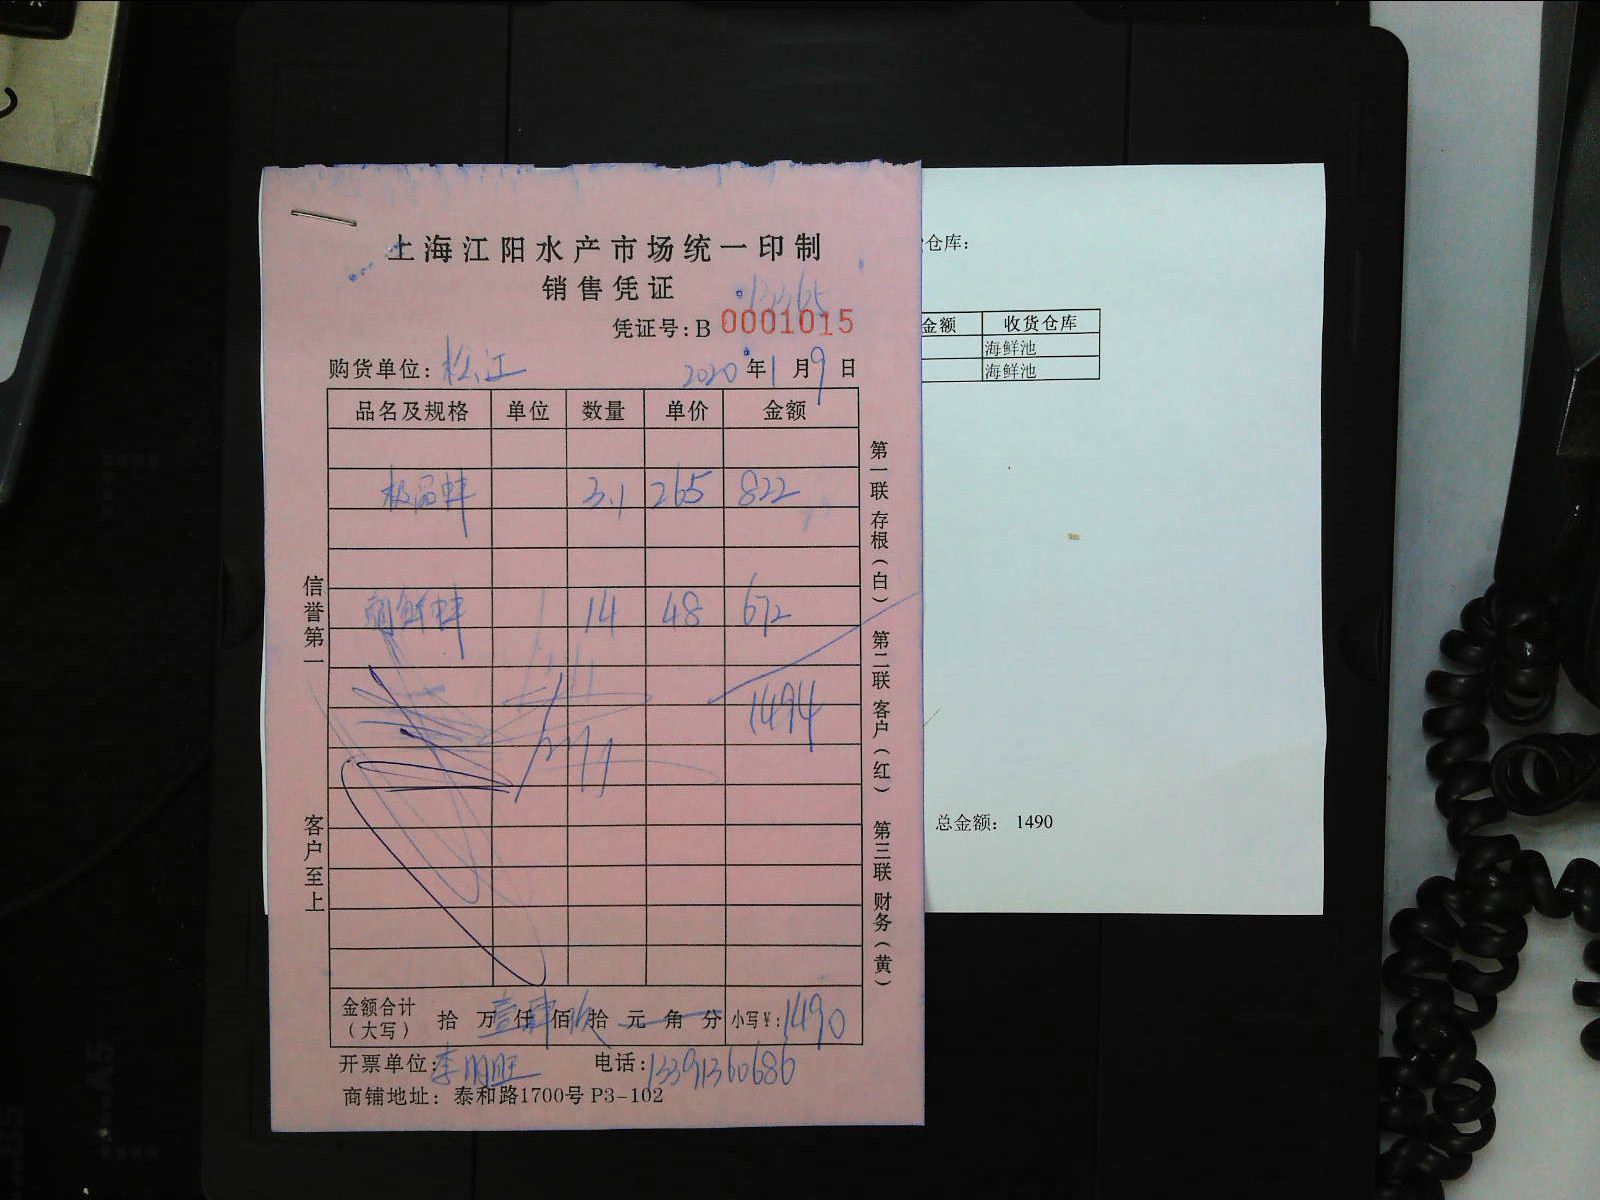 上海江阳水产市场统一印制
销售凭证
13365
凭证号:B 0001015
购货单位: 松江 2020年1月9日
品名及规格 单位 数量 单价 金额
极品蚌 3.1 265 822
朝鲜蚌 14 48 672
1494
金额合计(大写) 拾 万 壹仟肆佰玖拾 元 角 分 小写¥: 1490
开票单位: 李明旺 电话: 13391360686
商铺地址: 泰和路1700号 P3-102
信誉第一
客户至上
第一联 存根(白) 第二联 客户(红) 第三联 财务(黄)
仓库:
金额 收货仓库
海鲜池
海鲜池
总金额: 1490